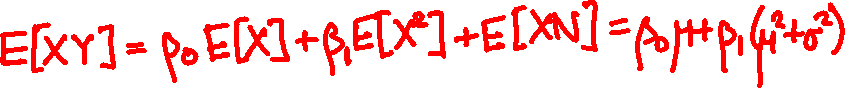 E[XY] = β₀E[X] + β₁E[X²] + E[XN] = β₀μ + β₁(μ²+σ²)